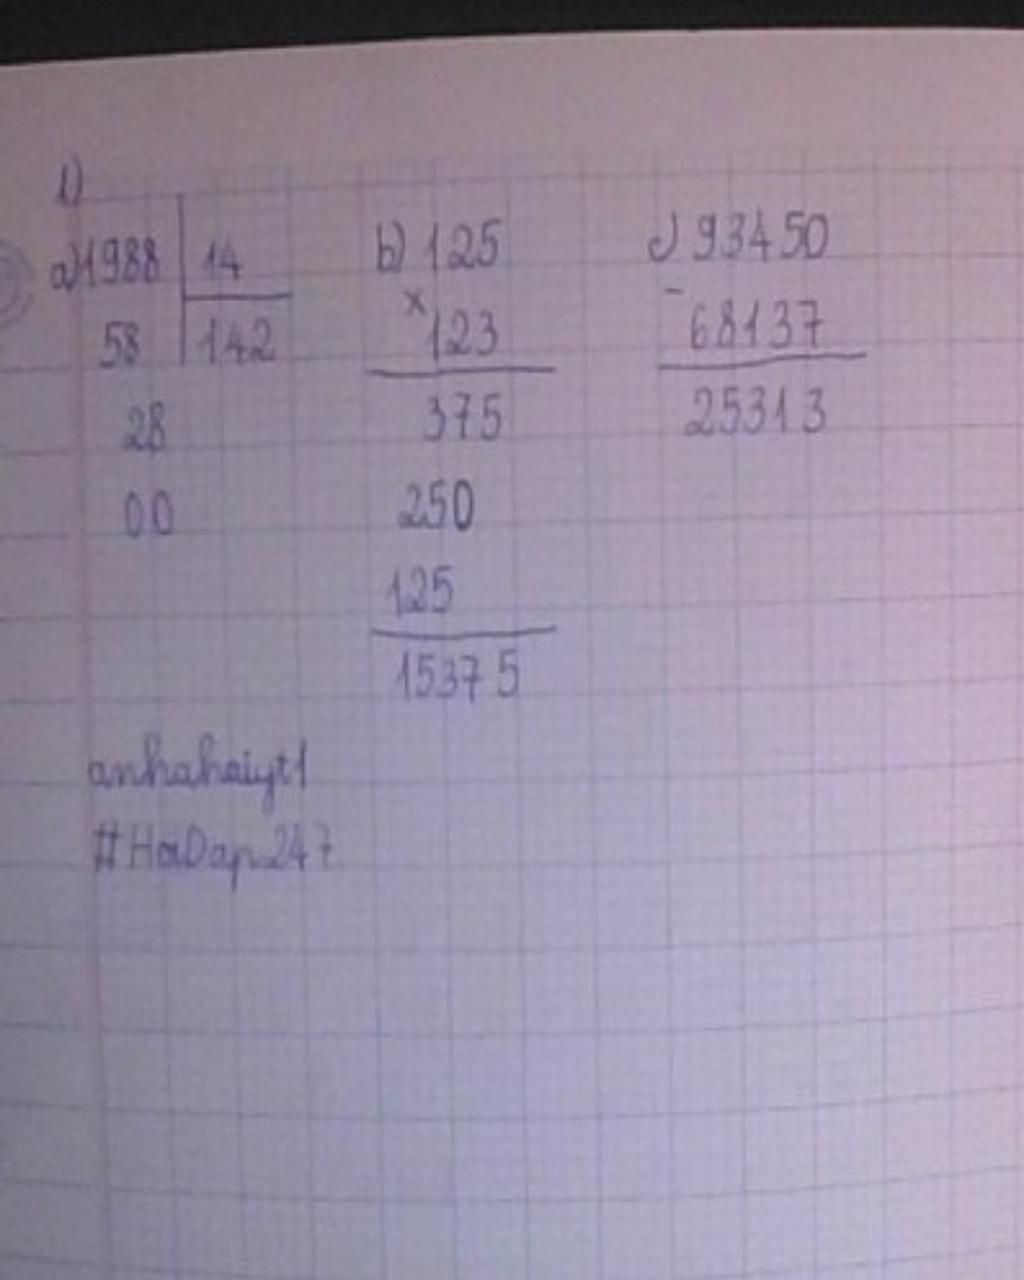 1)
a) 1988 | 14
58 | 142
28
00
b) 125
×
123
375
250
125
15375
c) 93450
-
68137
25313
anhahaiyt1
#HoiDap247